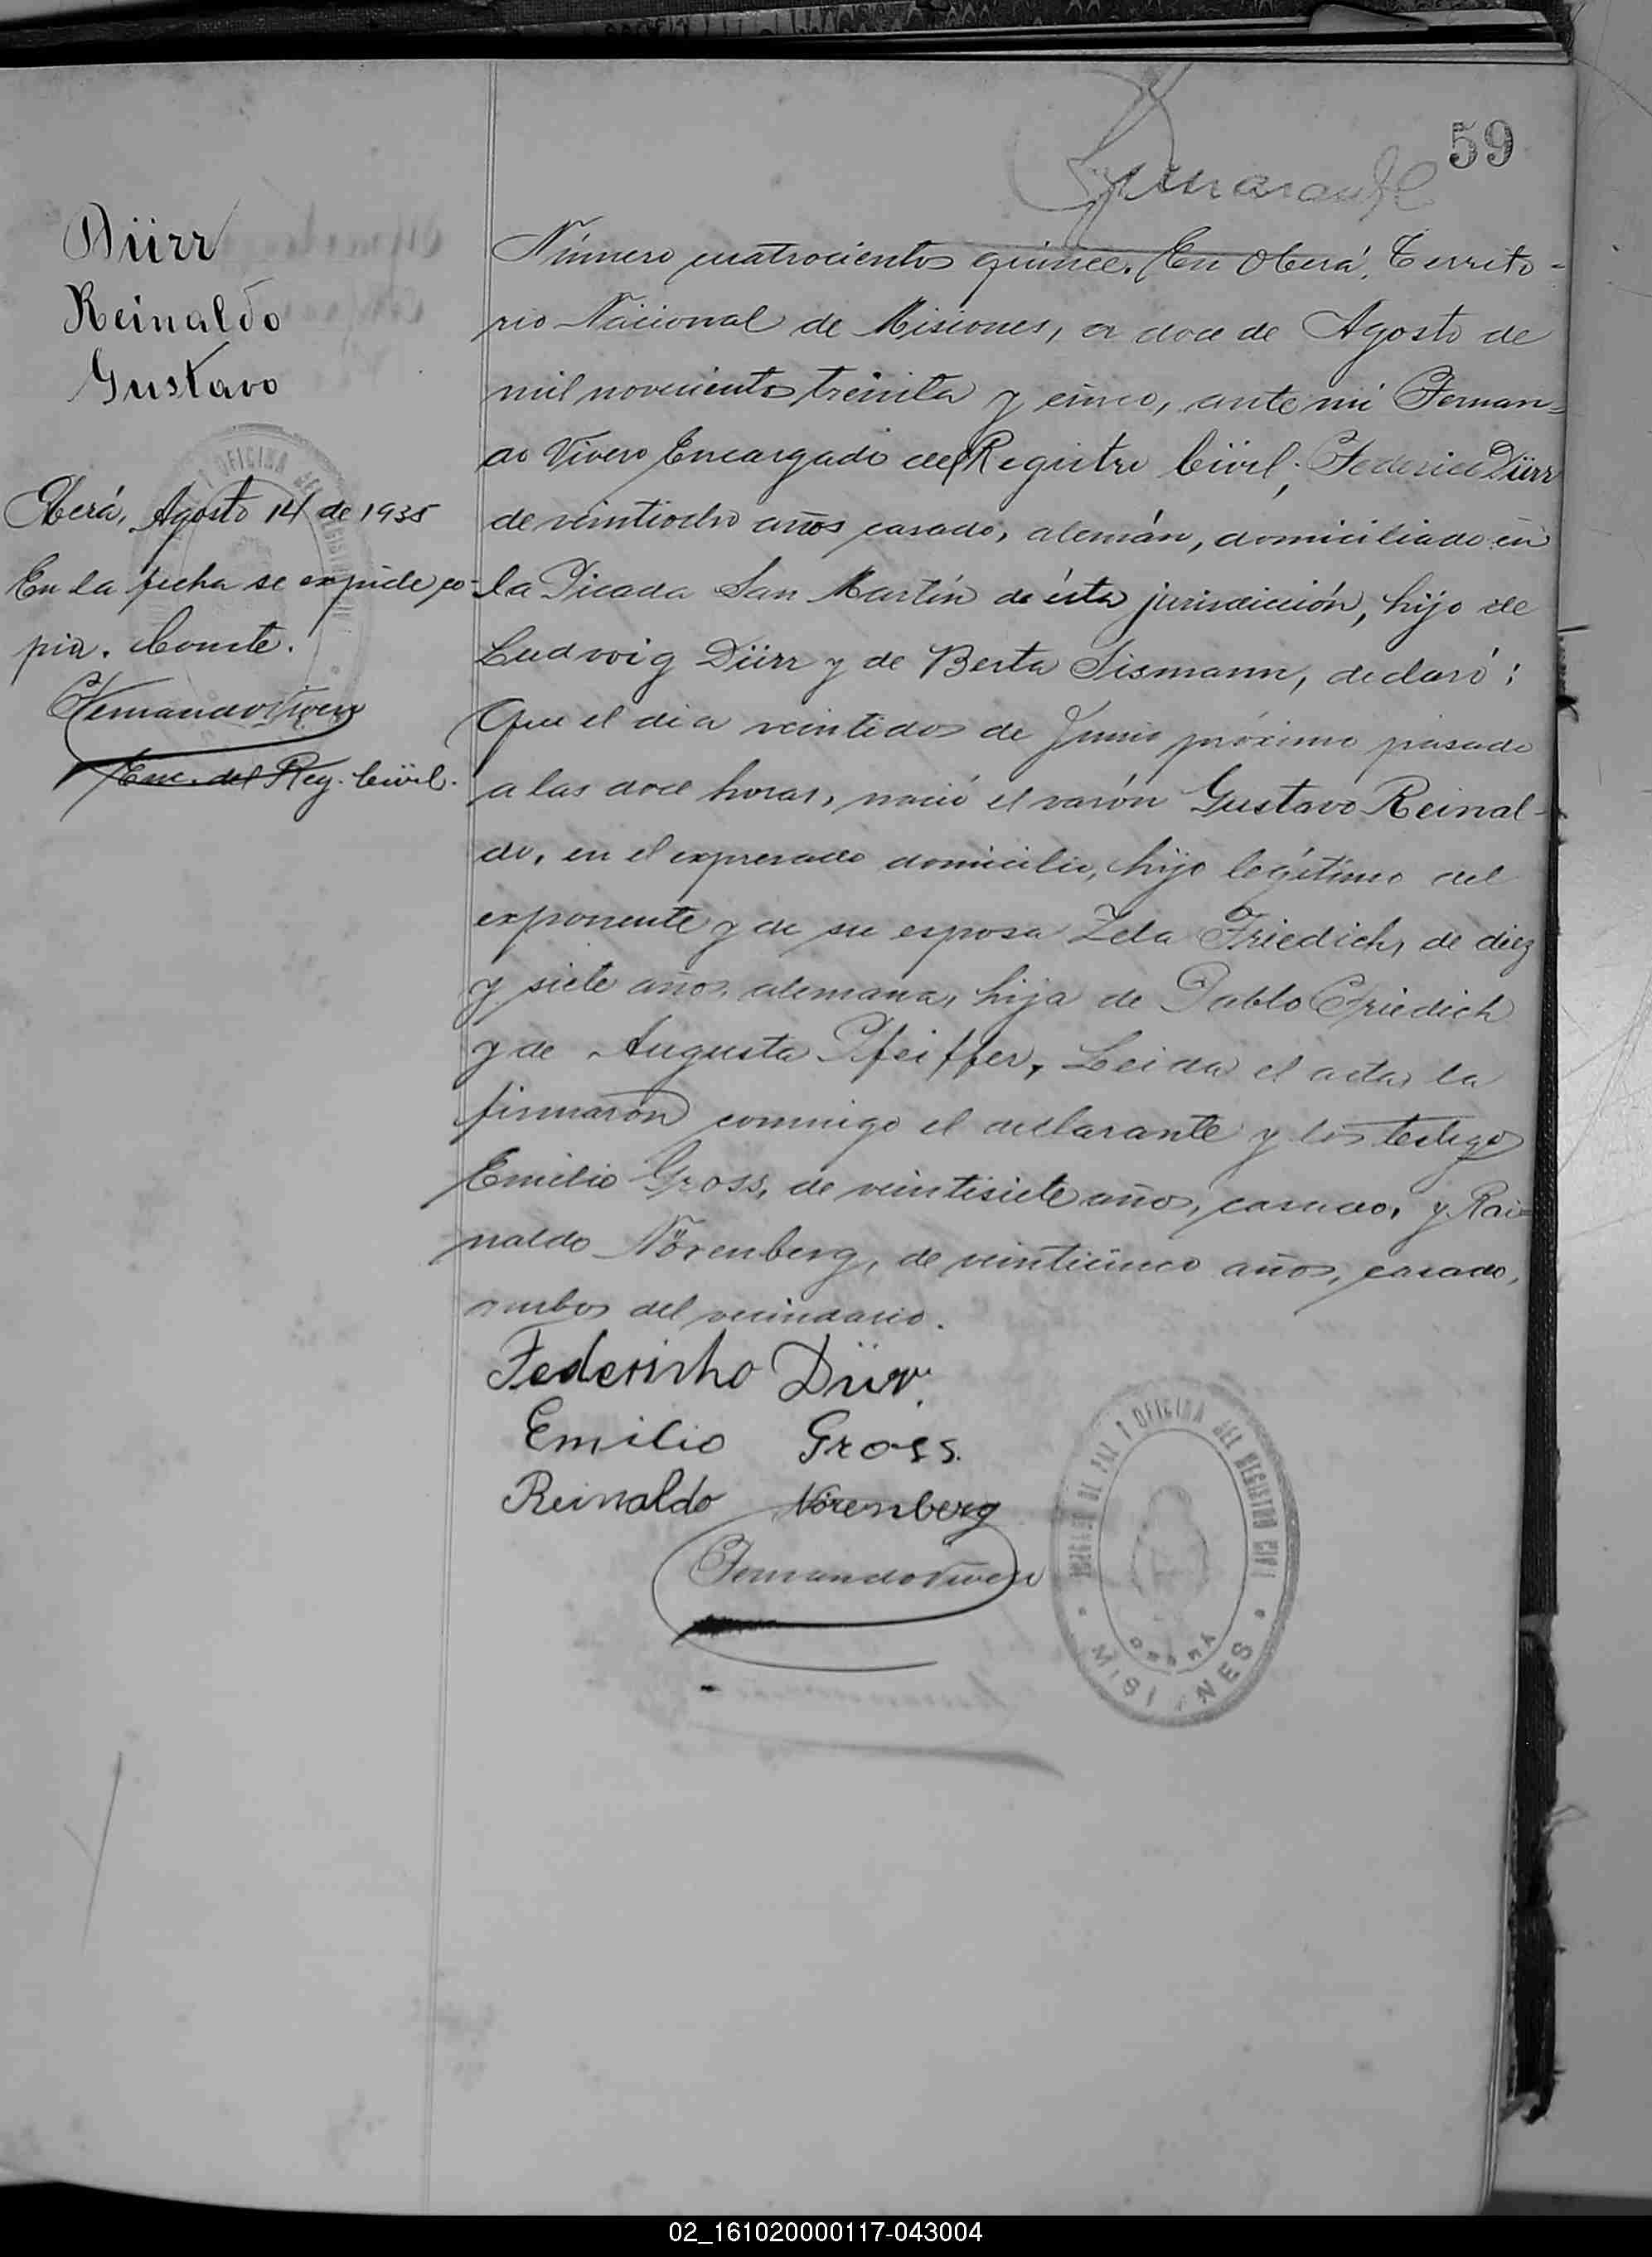 59
Dürr
Reinaldo
Gustavo
Oberá, Agosto 14 de 1935
En la fecha se expide co-
pia. Conste.
Fernando Vivero
Enc. del Reg. Civil.
Número cuatrocientos quince. En Oberá, Territo-
rio Nacional de Misiones, a doce de Agosto de
mil novecientos treinta y cinco, ante mi Fernan-
do Vivero Encargado del Registro Civil; Federico Dürr
de veintiocho años casado, alemán, domiciliado en
la Picada San Martín de ésta jurisdicción, hijo de
Ludwig Dürr y de Berta Sismann, declaró:
Que el dia veintidos de Junio próximo pasado
a las doce horas, nació el varón Gustavo Reinal-
do, en el expresado domicilio, hijo legítimo del
exponente y de su esposa Zela Friedich, de diez
y siete años, alemana, hija de Pablo Friedich
y de Augusta Pfeiffer, Leida el acta, la
firmaron conmigo el declarante y los testigos
Emilio Gross, de veintisiete años, casado, y Rai=
naldo Nörenberg, de veinticinco años, casado,
ambos del vecindario.
Federicho Dürr.
Emilio Gross.
Reinaldo Nörenberg
Fernando Vivero
JUZGADO DE PAZ Y OFICINA DEL REGISTRO CIVIL
OBERÁ
MISIONES
02_161020000117-043004